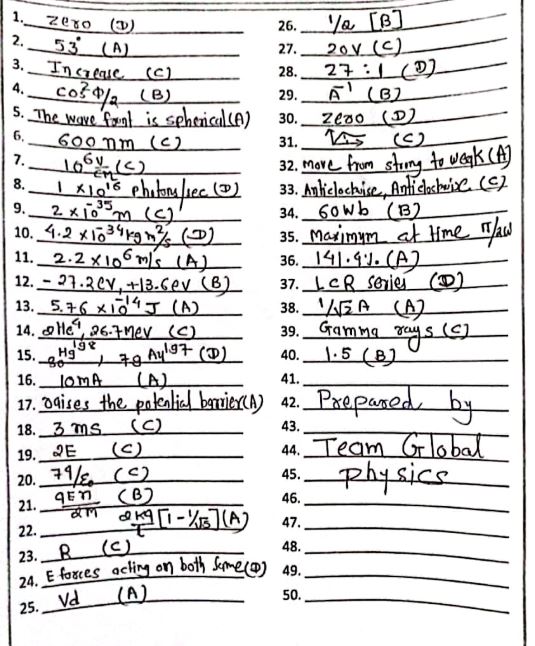 1. Zero (D)
2. 53° (A)
3. Increase (C)
4. cos² Φ/2 (B)
5. The wave front is spherical (A)
6. 600 nm (C)
7. 10⁶ V/m (C)
8. 1 × 10¹⁶ photons/sec (D)
9. 2 × 10⁻³⁵ m (C)
10. 4.2 × 10⁻³⁴ kg m²/s (D)
11. 2.2 × 10⁶ m/s (A)
12. - 27.2 eV, +13.6 eV (B)
13. 5.76 × 10⁻¹⁴ J (A)
14. 2He⁴, 26.7 MeV (C)
15. 80Hg¹⁹⁸, 79Au¹⁹⁷ (D)
16. 10mA (A)
17. raises the potential barrier (A)
18. 3 ms (C)
19. 2E (C)
20. 7q/ε₀ (C)
21. qEn/2m (B)
22. 2kq/L [1 - 1/√5] (A)
23. R (C)
24. E forces acting on both same (D)
25. Vd (A)
26. 1/a [B]
27. 20V (C)
28. 27 : 1 (D)
29. A⁻¹ (B)
30. Zero (D)
31. (C)
32. move from strong to weak (A)
33. Anticlockwise, Anticlockwise (C)
34. 60Wb (B)
35. Maximum at time π/2ω
36. 141.4%. (A)
37. LCR series (D)
38. 1/√2 A (A)
39. Gamma rays (C)
40. 1.5 (B)
41.
42. Prepared by
43.
44. Team Global
45. physics
46.
47.
48.
49.
50.